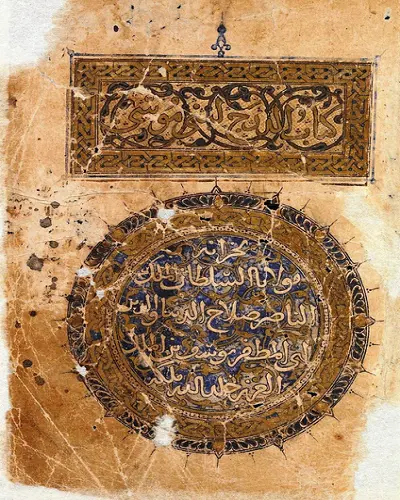 كتاب
خزانة
مولانا السلطان الملك
الناصر صلاح الدنيا والدين
ابى المظفر يوسف بن الملك
العزيز خلد الله ملكه